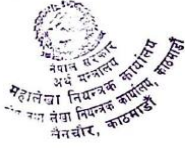 नेपाल सरकार
अर्थ मन्त्रालय
महालेखा नियन्त्रक कार्यालय
तथा लेखा नियन्त्रक कार्यालय, काठमाडौं
नैनचौर, काठमाडौं